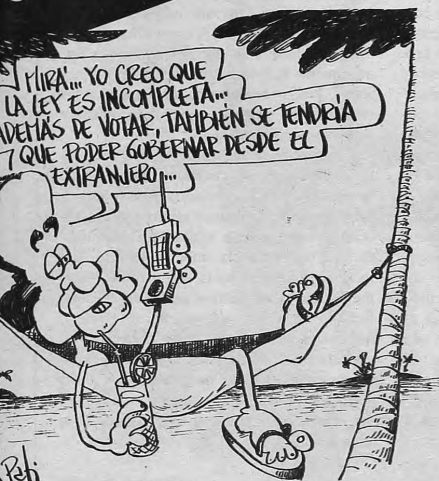 MIRÁ... YO CREO QUE
LA LEY ES INCOMPLETA...
ADEMÁS DE VOTAR, TAMBIÉN SE TENDRÍA
QUE PODER GOBERNAR DESDE EL
EXTRANJERO...